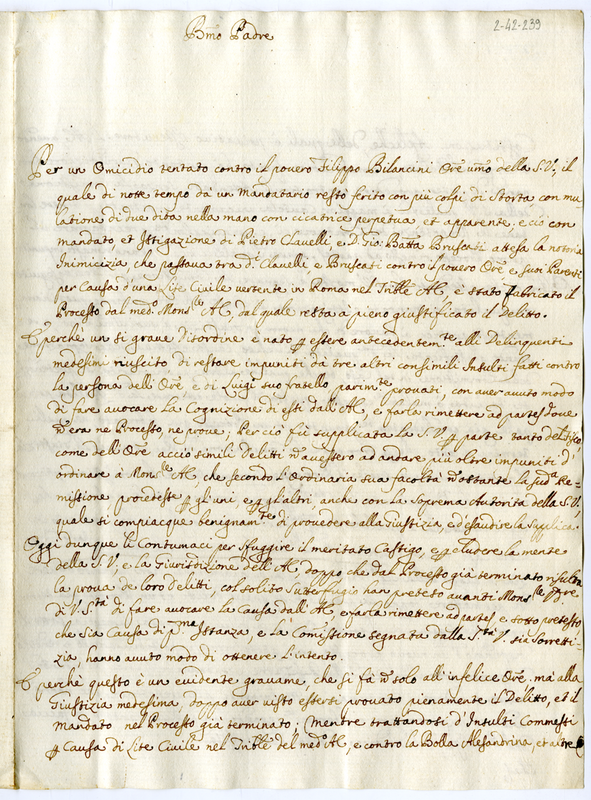 2-42-239
Bmo Padre
Per un Omicidio tentato contro il povero Filippo Bilancini Ore umo della S.V., il
quale di notte tempo da un Mandatario restò ferito con più colpi di Storta con mu
latione di due dita nella mano con cicatrice perpetua et apparente; e ciò con
mandato, et Istigazione di Pietro Clavelli, e D. Gio: Batta Bruscati attesa la notoria
Inimicizia, che passava tra di Clavelli e Bruscati contro il povero Ore e suoi Parenti
per Causa d'una Lite Civile vertente in Roma nel Trible AC, è stato fabricato il
Processo dal medo Monsre AC, dal quale resta à pieno giustificato il Delitto.
E perchè un si grave Disordine è nato p essere antecedentemte alli Delinquenti
medesimi riuscito di restare impuniti da tre altri consimili Insulti fatti contro
la persona dell'Ore, e di Luigi suo fratello parimte provati, con aver avuto modo
di fare avocare la Cognizione di essi dall'AC, e farla rimettere ad partes dove
era ne Processo, ne prove. Per ciò fù supplicata la S.V. p parte tanto del
come dell'Ore acciò simili delitti avessero ad andare più oltre impuniti d'
ordinare à Monsre AC, che secondo l'Ordinaria sua facoltà ostante la suda Re=
missione procedesse p gl'uni e p gl'altri, anche con la Soprema Autorità della S.V.
quale si compiacque benignamte di provedere alla Giustizia, ed esaudire la Supplica.
Oggi dunque li Contumaci per sfuggire il meritato Castigo, e p eludere la mente
della S.V. e la Giurisdizione dell'AC doppo che dal Processo già terminato risulta
la prova de loro delitti, col solito Sutterfugio han preteso avanti Monsre
di V. Sta di fare avocare la Causa dall'AC e farla rimettere ad partes, e sotto pretesto
che sia Causa di pma Istanza, e la Comissione segnata dalla Sta V. sia Sorretti=
zia, hanno avuto modo di ottenere l'intento.
E perchè questo è un evidente gravame, che si fà solo all'infelice Ore. ma alla
Giustizia medesima, doppo aver visto essersi provato pienamente il Delitto, et il
Mandato nel Processo già terminato; (Mentre trattandosi d'Insulti Commessi
p Causa di Lite Civile nel Trible del medo AC, e contro la Bolla Alesandrina, et altre